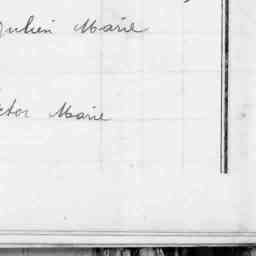 Julien Marie
ctor Marie